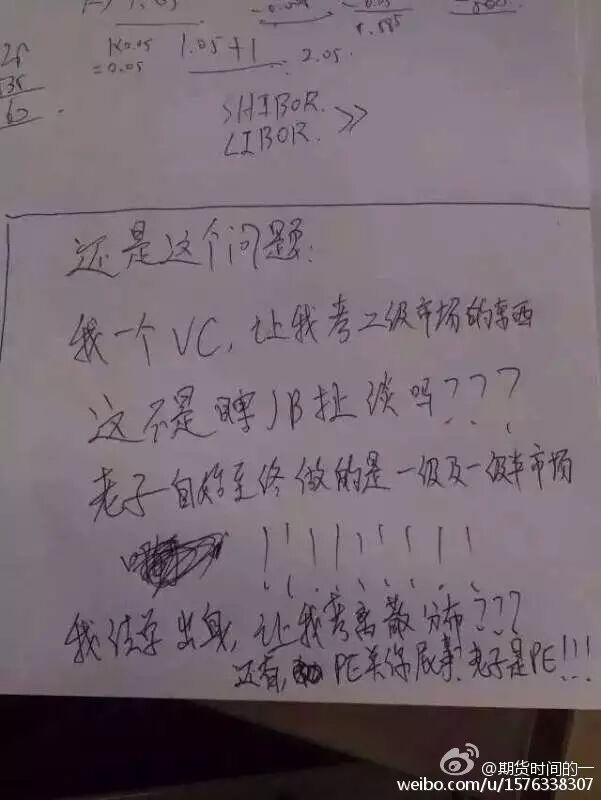 1×0.05
=0.05
1.05+1
2.05.
25
35
60
SHIBOR.
LIBOR.
>>
还是这个问题:
我一个VC,让我考二级市场的东西
这不是瞎JB扯谈吗???
老子自始至终做的是一级及一级半市场
!!!!!!!!!
我法学出身,让我考离散分布???
还有, PE关你屁事!老子是PE!!!
@期货时间的一
weibo.com/u/1576338307